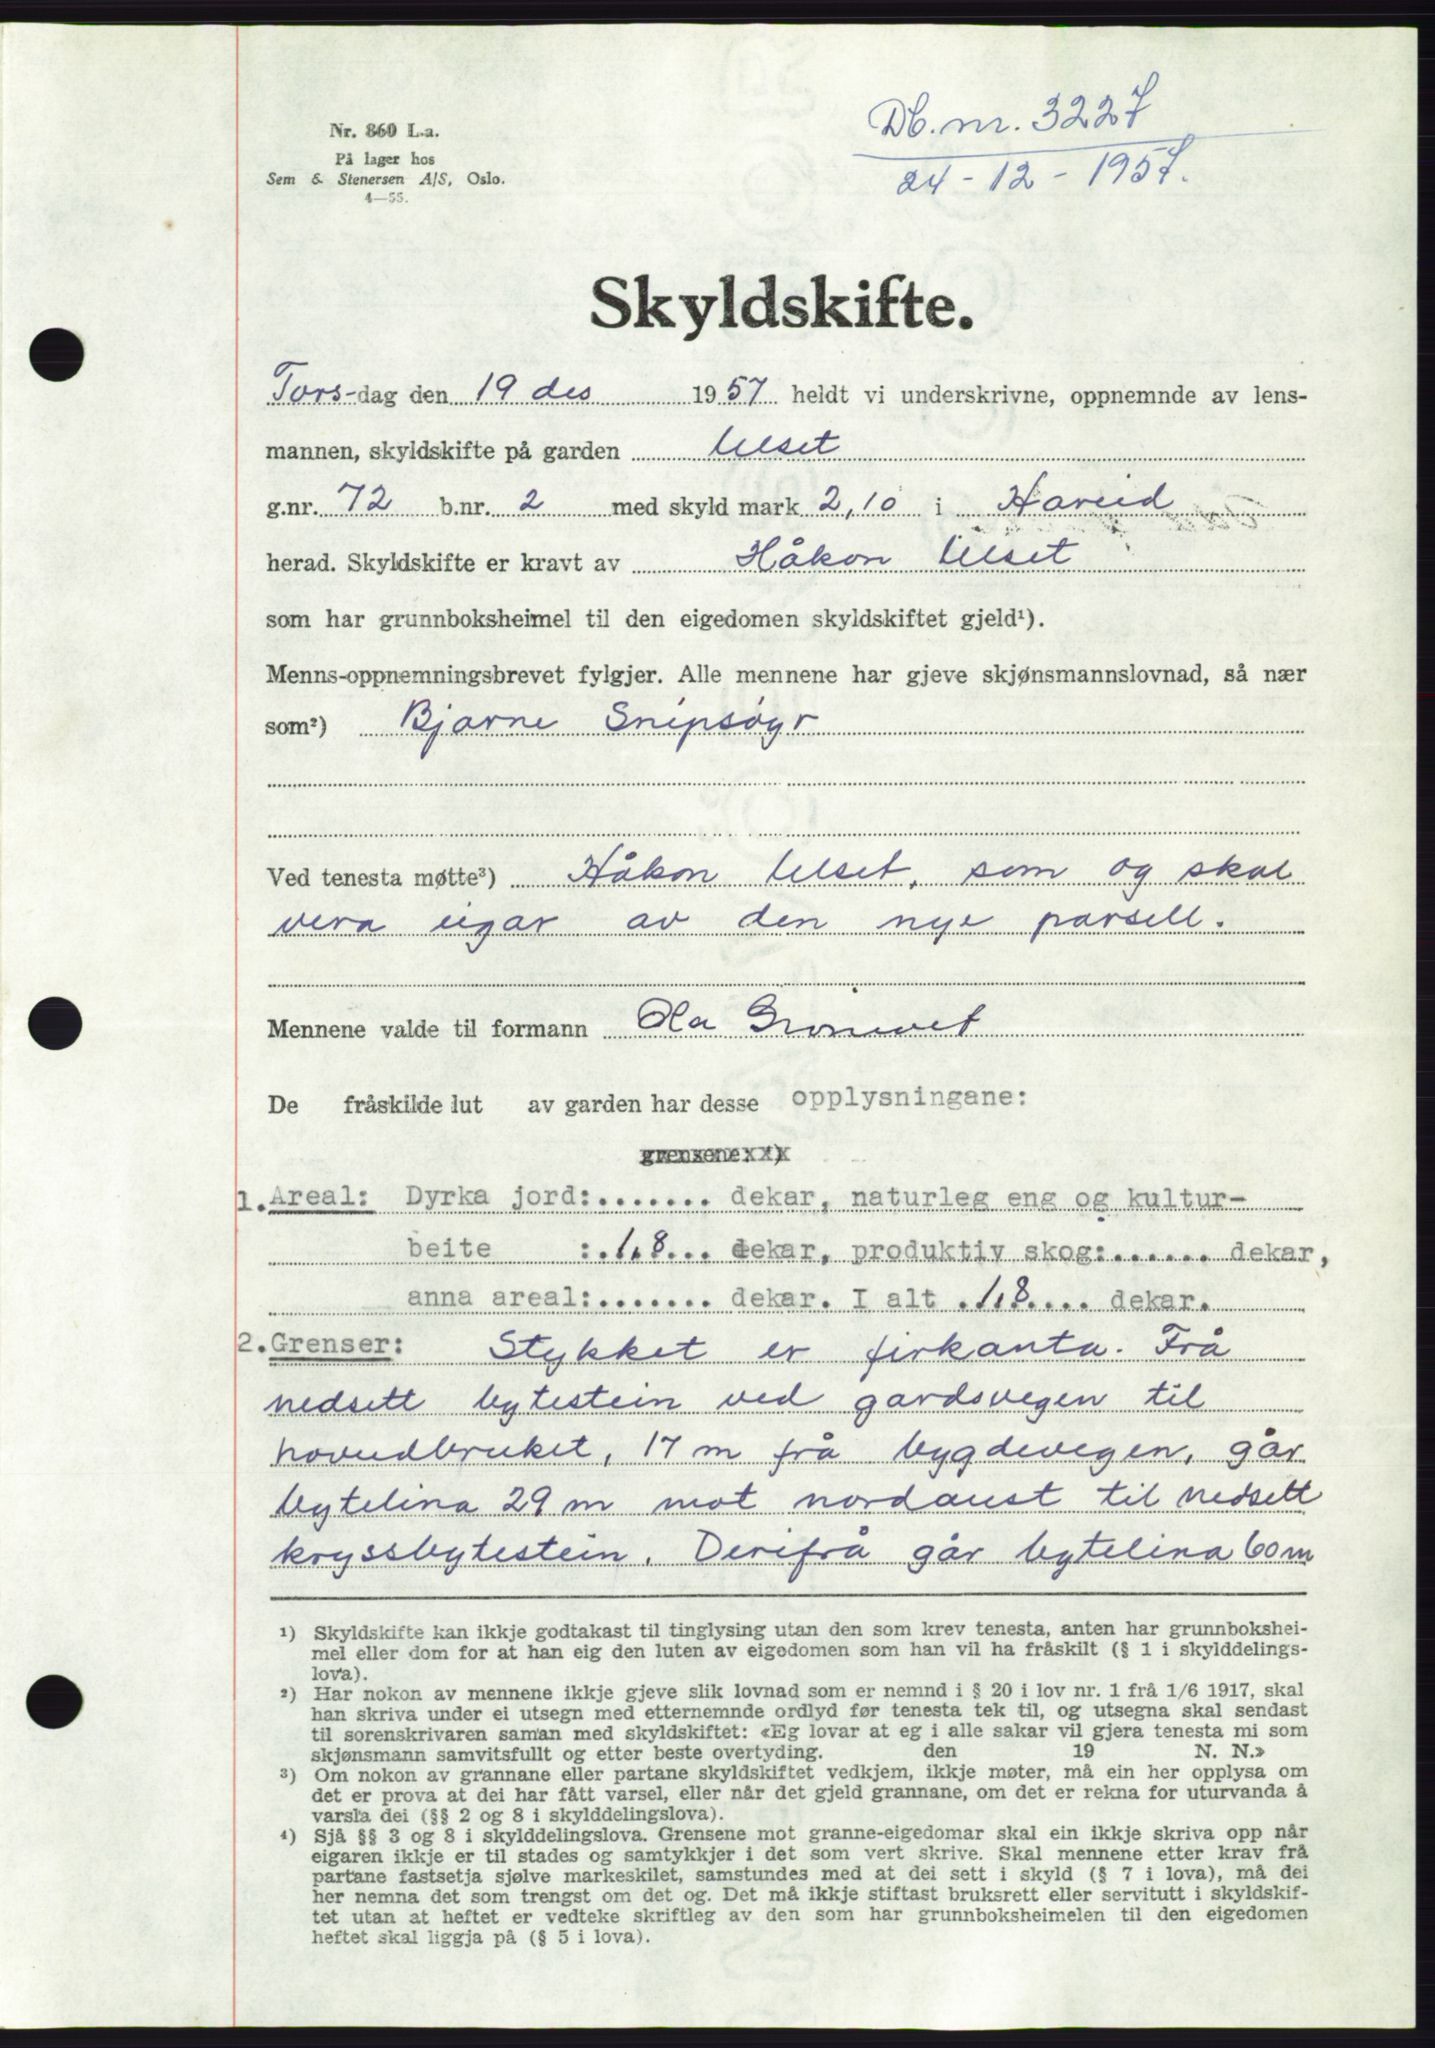 Db. nr. 3227
24 - 12 - 1957.
Nr. 860 L.a.
På lager hos
Sem & Stenersen A/S, Oslo.
4—55.
Skyldskifte.
Tors-dag den 19 des 1957 heldt vi underskrivne, oppnemnde av lens-
mannen, skyldskifte på garden Ulset
g.nr. 72 b.nr. 2 med skyld mark 2,10 i Hareid
herad. Skyldskifte er kravt av Håkon Ulset
som har grunnboksheimel til den eigedomen skyldskiftet gjeld¹).
Menns-oppnemningsbrevet fylgjer. Alle mennene har gjeve skjønsmannslovnad, så nær
som²) Bjarne Snipsøyr
Ved tenesta møtte³) Håkon Ulset, som og skal
vera eigar av den nye parsell.
Mennene valde til formann Ola
De fråskilde lut av garden har desse opplysningane:
grensene
1. Areal: Dyrka jord:....... dekar, naturleg eng og kultur-
beite :.1,8... dekar, produktiv skog:...... dekar,
anna areal:....... dekar. I alt .1,8.... dekar.
2. Grenser: Stykket er firkanta. Frå
nedsett bytestein ved gardsvegen til
hovudbruket, 17 m frå bygdevegen, går
bytelina 29 m mot nordaust til nedsett
kryssbytestein. Derifrå går bytelina 60 m
¹) Skyldskifte kan ikkje godtakast til tinglysing utan den som krev tenesta, anten har grunnbokshei-
mel eller dom for at han eig den luten av eigedomen som han vil ha fråskilt (§ 1 i skylddelings-
lova).
²) Har nokon av mennene ikkje gjeve slik lovnad som er nemnd i § 20 i lov nr. 1 frå 1/6 1917, skal
han skriva under ei utsegn med etternemnde ordlyd før tenesta tek til, og utsegna skal sendast
til sorenskrivaren saman med skyldskiftet: «Eg lovar at eg i alle sakar vil gjera tenesta mi som
skjønsmann samvitsfullt og etter beste overtyding. den 19 N. N.»
³) Om nokon av grannane eller partane skyldskiftet vedkjem, ikkje møter, må ein her opplysa om
det er prova at dei har fått varsel, eller når det gjeld grannane, om det er rekna for uturvanda å
varsla dei (§§ 2 og 8 i skylddelingslova).
⁴) Sjå §§ 3 og 8 i skylddelingslova. Grensene mot granne-eigedomar skal ein ikkje skriva opp når
eigaren ikkje er til stades og samtykkjer i det som vert skrive. Skal mennene etter krav frå
partane fastsetja sjølve markeskilet, samstundes med at dei sett i skyld (§ 7 i lova), må dei
her nemna det som trengst om det og. Det må ikkje stiftast bruksrett eller servitutt i skyldskif-
tet utan at heftet er vedteke skriftleg av den som har grunnboksheimelen til den eigedomen
heftet skal liggja på (§ 5 i lova).